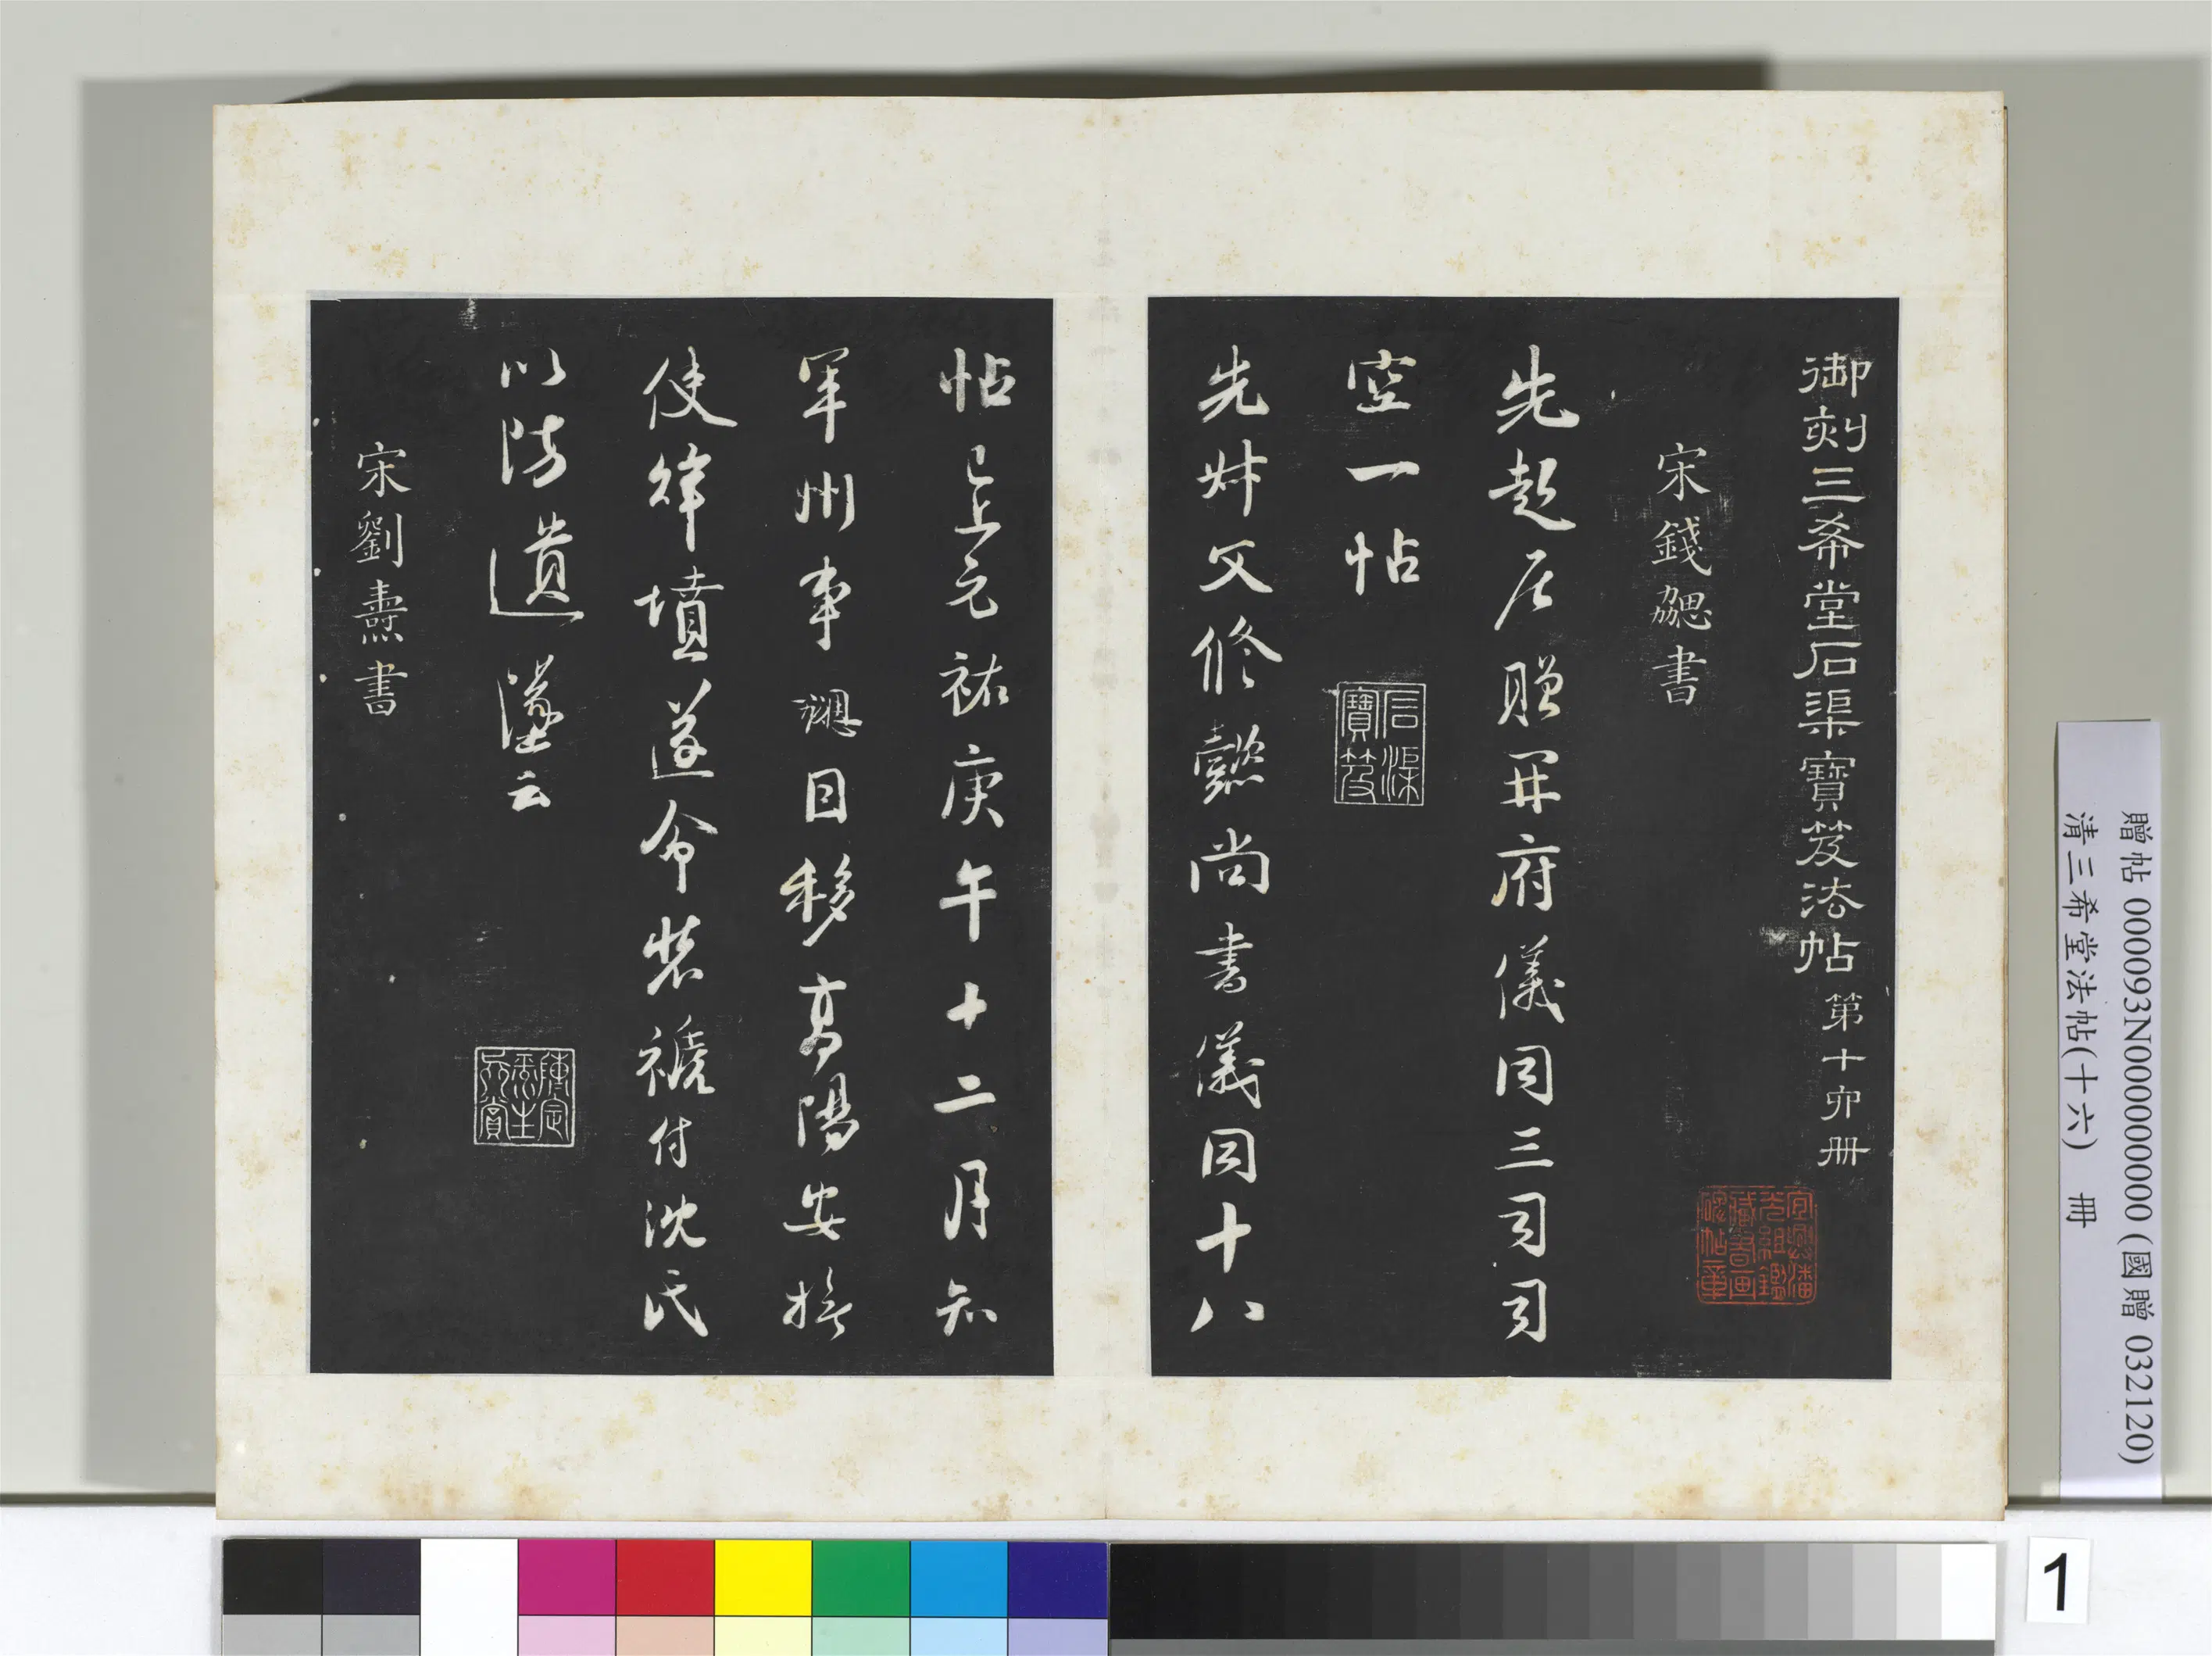 御刻三希堂石渠寶笈法帖 第十六冊
宋錢勰書
先起居贈開府儀同三司司
空一帖
石渠寶笈
先叔父修懿尚書儀同十八
帖已上元祐庚午十二月知
軍州事勰因移高陽安撫
使拜墳遂令裝褫付沈氏
以防遺墜云
宋劉燾書
贈帖 000093N000000000 (國贈 032120)
清三希堂法帖(十六) 冊
1